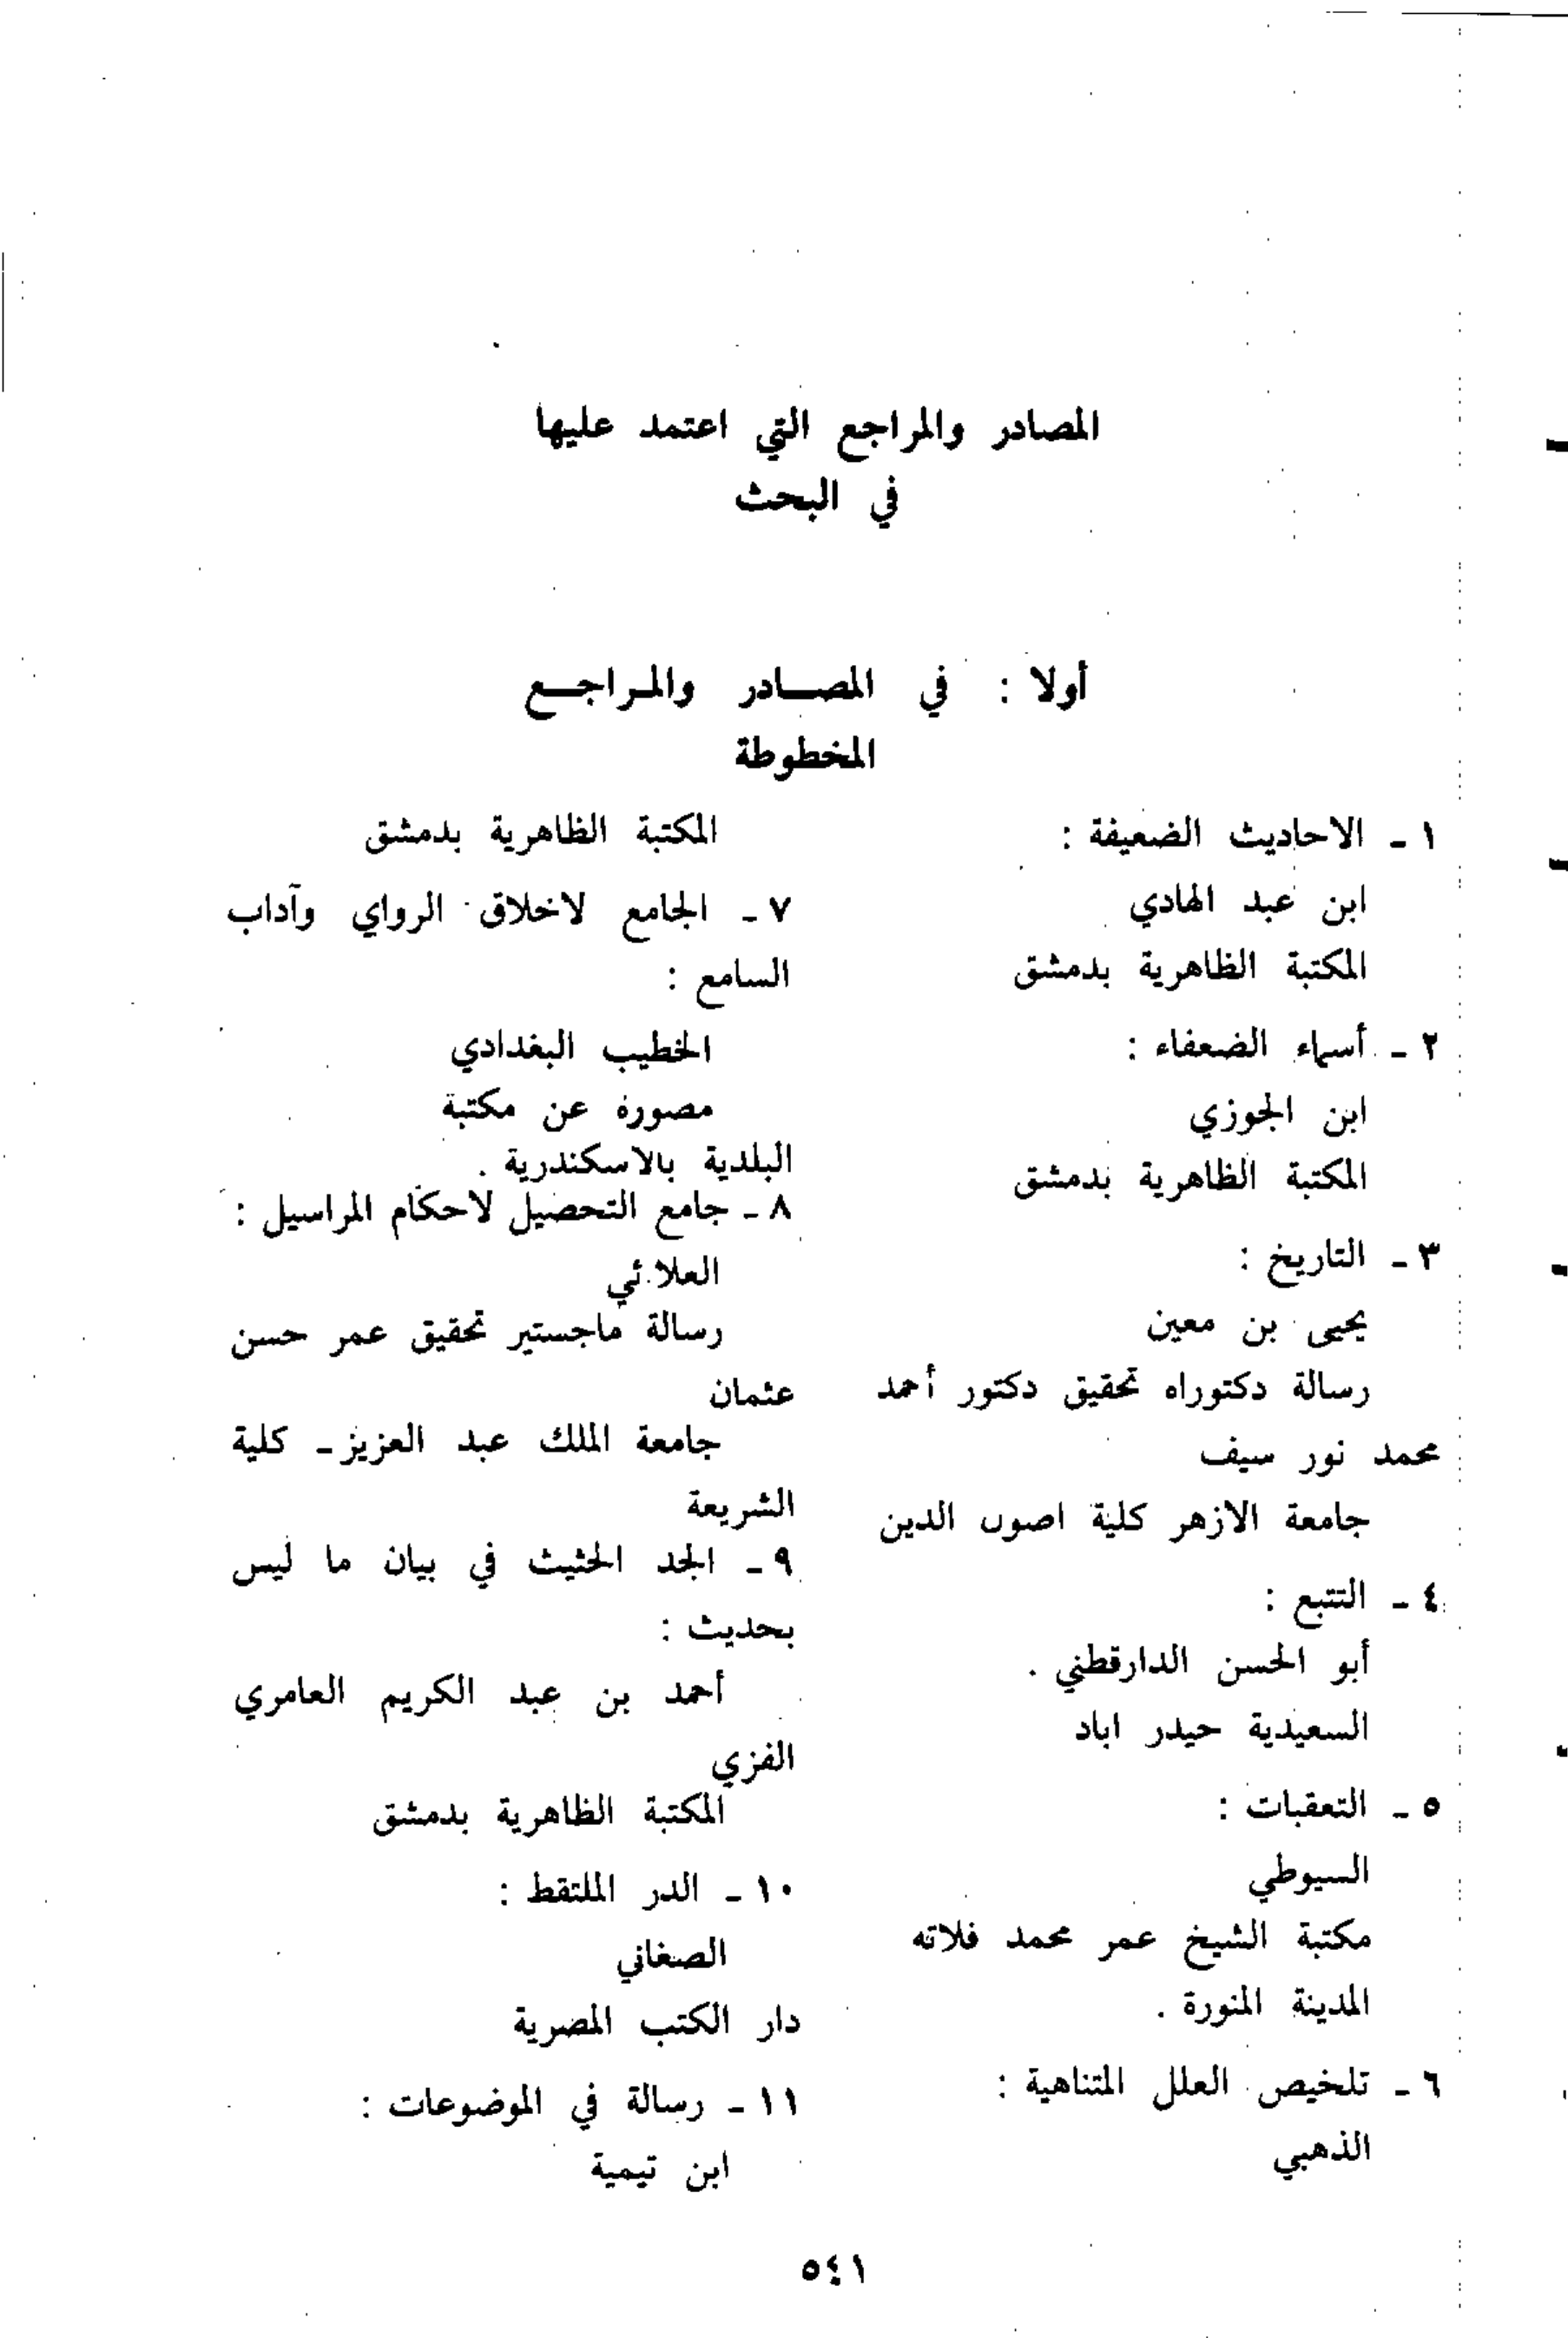 المصادر والمراجع التي اعتمد عليها
في البحث
أولا : في المصادر والمراجع
المخطوطة
١ ـ الاحاديث الضعيفة :
ابن عبد الهادي
المكتبة الظاهرية بدمشق
٢ ـ أسماء الضعفاء :
ابن الجوزي
المكتبة الظاهرية بدمشق
٣ ـ التاريخ :
يحيى بن معين
رسالة دكتوراه تحقيق دكتور أحمد
محمد نور سيف
جامعة الازهر كلية اصول الدين
٤ ـ التتبع :
أبو الحسن الدارقطني .
السعيدية حيدر اباد
٥ ـ التعقبات :
السيوطي
مكتبة الشيخ عمر محمد فلاته
المدينة المنورة .
٦ ـ تلخيص العلل المتناهية :
الذهبي
المكتبة الظاهرية بدمشق
٧ ـ الجامع لاخلاق الرواي وآداب
السامع :
الخطيب البغدادي
مصورة عن مكتبة
البلدية بالاسكندرية .
٨ ـ جامع التحصيل لاحكام المراسيل :
العلائي
رسالة ماجستير تحقيق عمر حسن
عثمان
جامعة الملك عبد العزيز ـ كلية
الشريعة
٩ ـ الجد الحثيث في بيان ما ليس
بحديث :
أحمد بن عبد الكريم العامري
الفزي
المكتبة الظاهرية بدمشق
١٠ ـ الدر الملتقط :
الصغاني
دار الكتب المصرية
١١ ـ رسالة في الموضوعات :
ابن تيمية
٥٤١